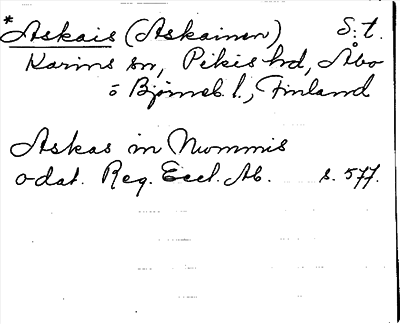 *Askais (Askainen) S:t.
Karins sn, Pikis hd, Åbo
o Björneb. l., Finland
Askas in Nummis
odat. Reg. Eccl. Ab. s. 577.